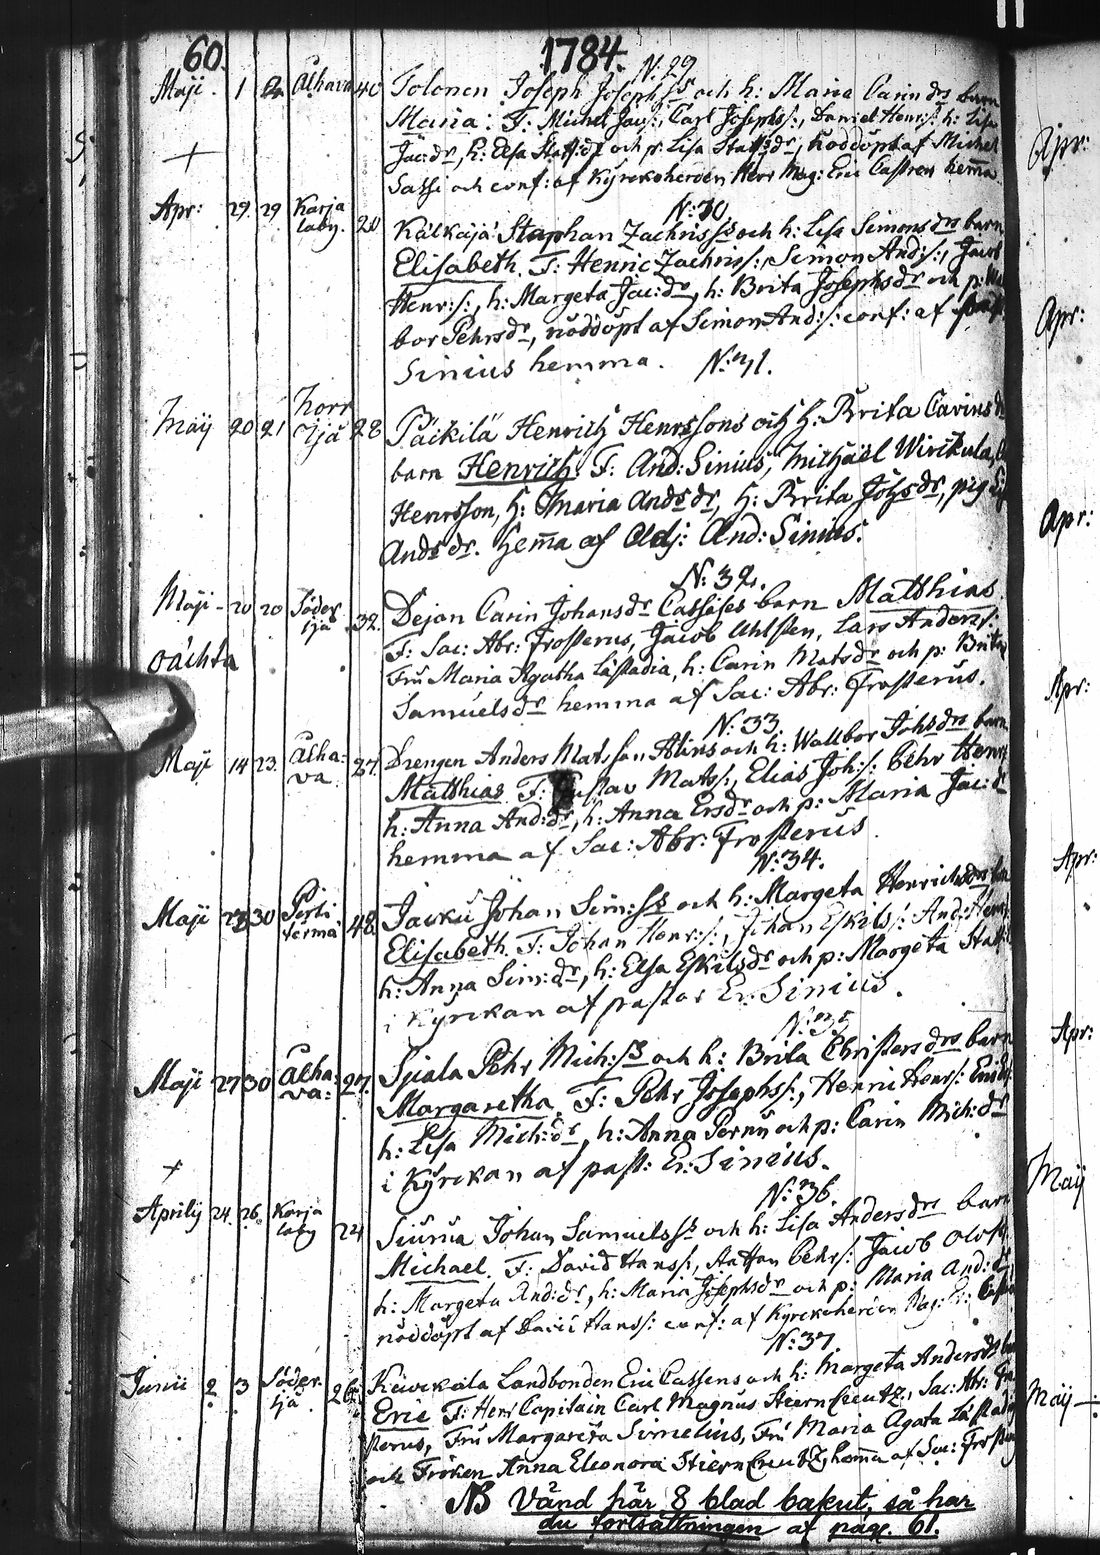 60. 1784.
N. 29
Maji. 1 Alhava 40 Tolonen Joseph Josephss och h: Maria Carin drs barn
Maria: F: Michel Jacs:, Carl Josephs:, Daniel Henr:s: h: Lisa
Jac:dr, h: Elsa Staff:dr och p: Lisa Staffsdr, nöddöpt af Michel
Sassi och conf: af Kyrckoherden Herr Mag: Eric Castren hemma.
N:30
Apr: 29 29 Karja laby. 20 Kälkäjä Staphan Zachrisss och h: Lisa Simonsdrs barn
Elisabeth. F: Henric Zachriss:, Simon And:s:, Jacob
Henr:s:, h: Margeta Jac:dr, h: Brita Josephsdr och p:
bor Pehrsdr, nöddöpt af Simon And:s: conf: af
Sinius hemma. N:31.
Maij 20 21 28 Päikilä Henrich Henrssons och h: Brita Carins
barn Henrich F: And: Sinius, Michaël Wirikula,
Henrsson, h: Maria Andsdr, h: Brita Johsdr, pig
Andsdr. hema af Adj: And: Sinius.
N:32.
Maji 20 20 Söder ijå 32. Dejan Carin Johansdr Cassöses barn Matthias
oächta F: Sac: Abr: Frosterus, Jacob Ahlsten, Lars Anders:
Fru Maria Agatha Låstadia, h: Carin Matsdr och p: Brita
Samuelsdr hemma af Sac: Abr: Frosterus.
N:33
Maji 14 23. Alha- va 27. Drengen Anders Matsson Alins och h: Wallbor Johsdrs barn
Matthias F: Gustav Mats:, Elias Joh:s: Pehr Henr:
h: Anna And:dr, h: Anna Ersdr och p: Maria Jac:d
hemma af Sac: Abr: Frosterus
N:34.
Maji 30 48 Johan Sim:ss och h: Margeta Henricsdrs
Elisabeth. F: Johan Henr:s:, Johan Eskils: And:Henr
h: Anna Sim:dr, h: Elsa Eskilsdr och p: Margeta
i Kyrckan af pastor Er: Sinius.
N:35
Maji 27 30 Alha- va: 27. Sjiala Pehr Mich:ss och h: Brita Christersdrs barn
Margaretha. F: Pehr Josephs:, Henric Henrs:
h: Lisa Mich:dr, h: Anna Pernu och p: Carin Mich:dr
i Kyrckan af past: Er: Sinius.
N:36.
Aprilij 24. 26. Karja laby 24 Siurua Johan Samuelsss och h: Lisa Andersdrs barn
Michael. F: David Hans:, Pehr: Jacob
h: Margeta And:dr, h: Maria Josephsdr och p: Maria And:
nöddöpt af David Hans: conf: af Kyrckoherden Mag: Er:
N:37
Junii 2 3 Söder- ijå 26 Landbonden Eric Cassens och h: Margeta Andersdrs
Eric F: Herr Capitain Carl Magnus Stierncreutz, Sac: Abr: Fro
sterus, Fru Margareta Simelius, Fru Maria Agata Låstadia
och Fröken Anna Eleonora Stierncreutz, hema af Sac: Frosterus
NB Vänd här 8 blad bakut, så har
du fortsättningen af pag. 61.
Apr:
Apr:
Apr:
Apr:
Apr:
Apr:
Maij
Maij